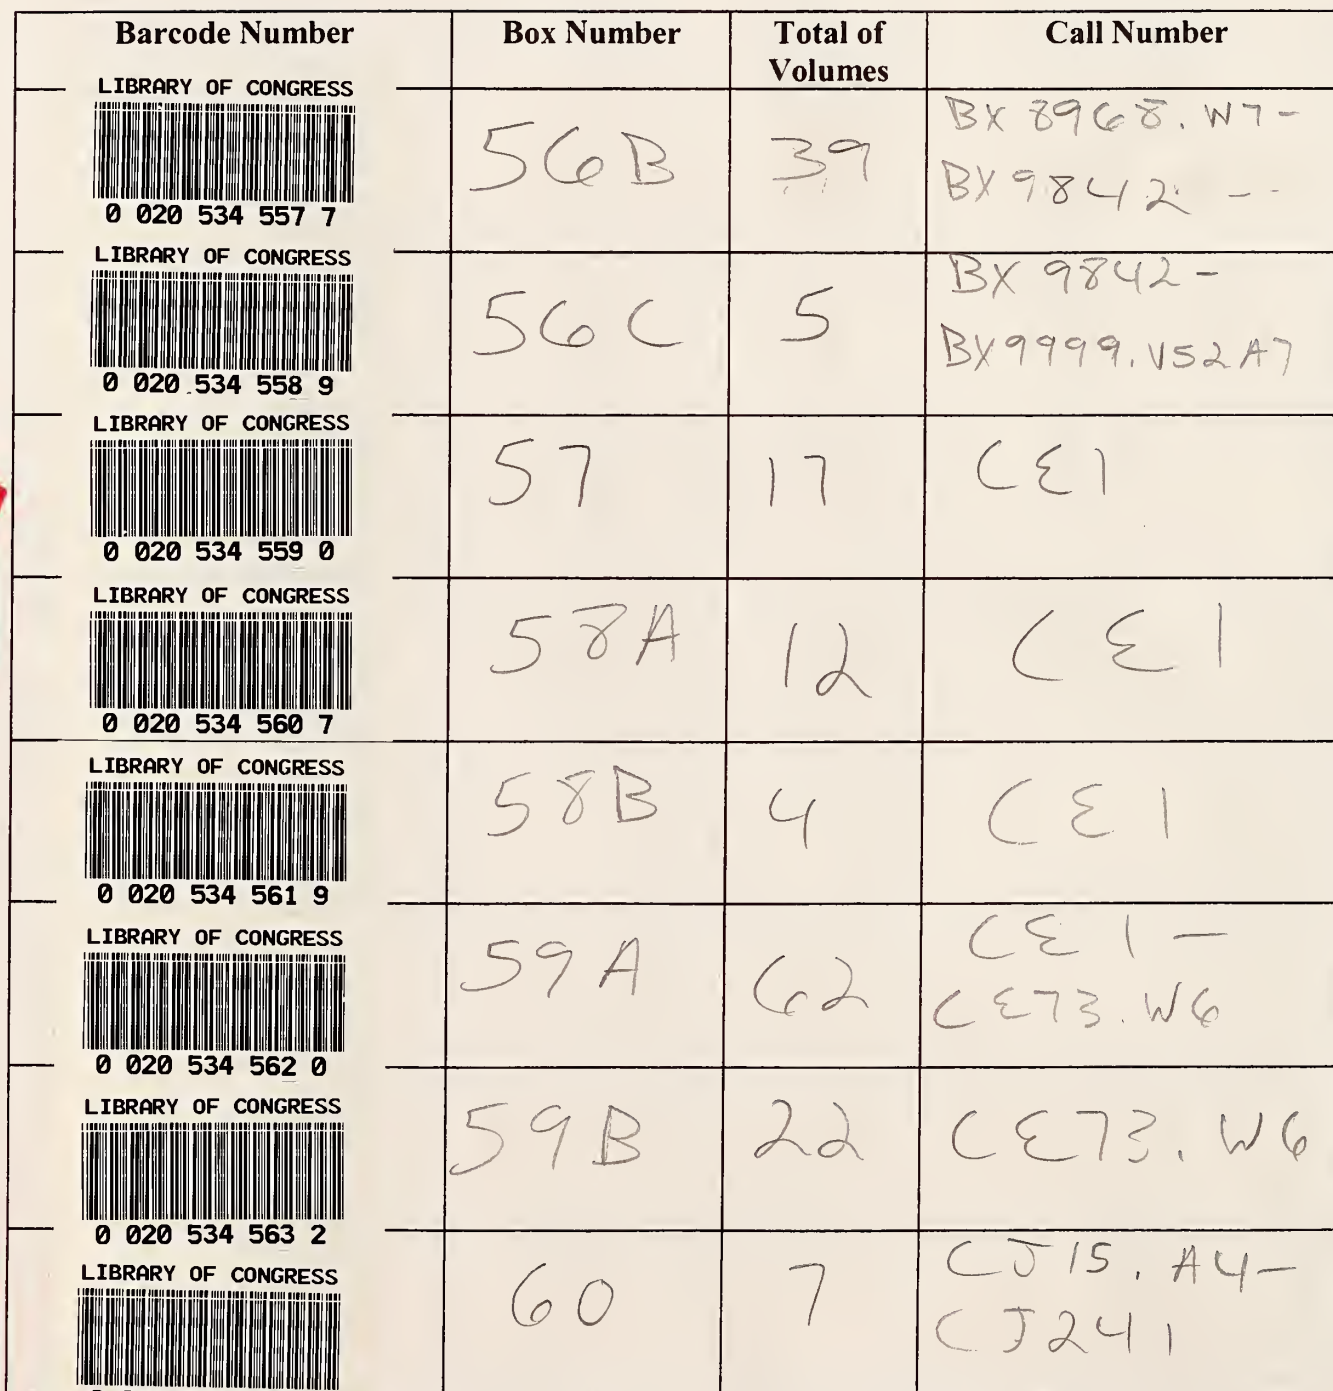 Barcode Number Box Number Total of Volumes Call Number
LIBRARY OF CONGRESS
0 020 534 557 7
56B
39
BX 8968. W7-
BX 9842 --
LIBRARY OF CONGRESS
0 020 534 558 9
56C
5
BX 9842-
BX9999. V52 A7
LIBRARY OF CONGRESS
0 020 534 559 0
57
17
CE1
LIBRARY OF CONGRESS
0 020 534 560 7
58A
12
CE1
LIBRARY OF CONGRESS
0 020 534 561 9
58B
4
CE1
LIBRARY OF CONGRESS
0 020 534 562 0
59A
62
CE 1 -
CE73. W6
LIBRARY OF CONGRESS
0 020 534 563 2
59B
22
CE73. W6
LIBRARY OF CONGRESS
60
7
CJ15. A4-
CJ241